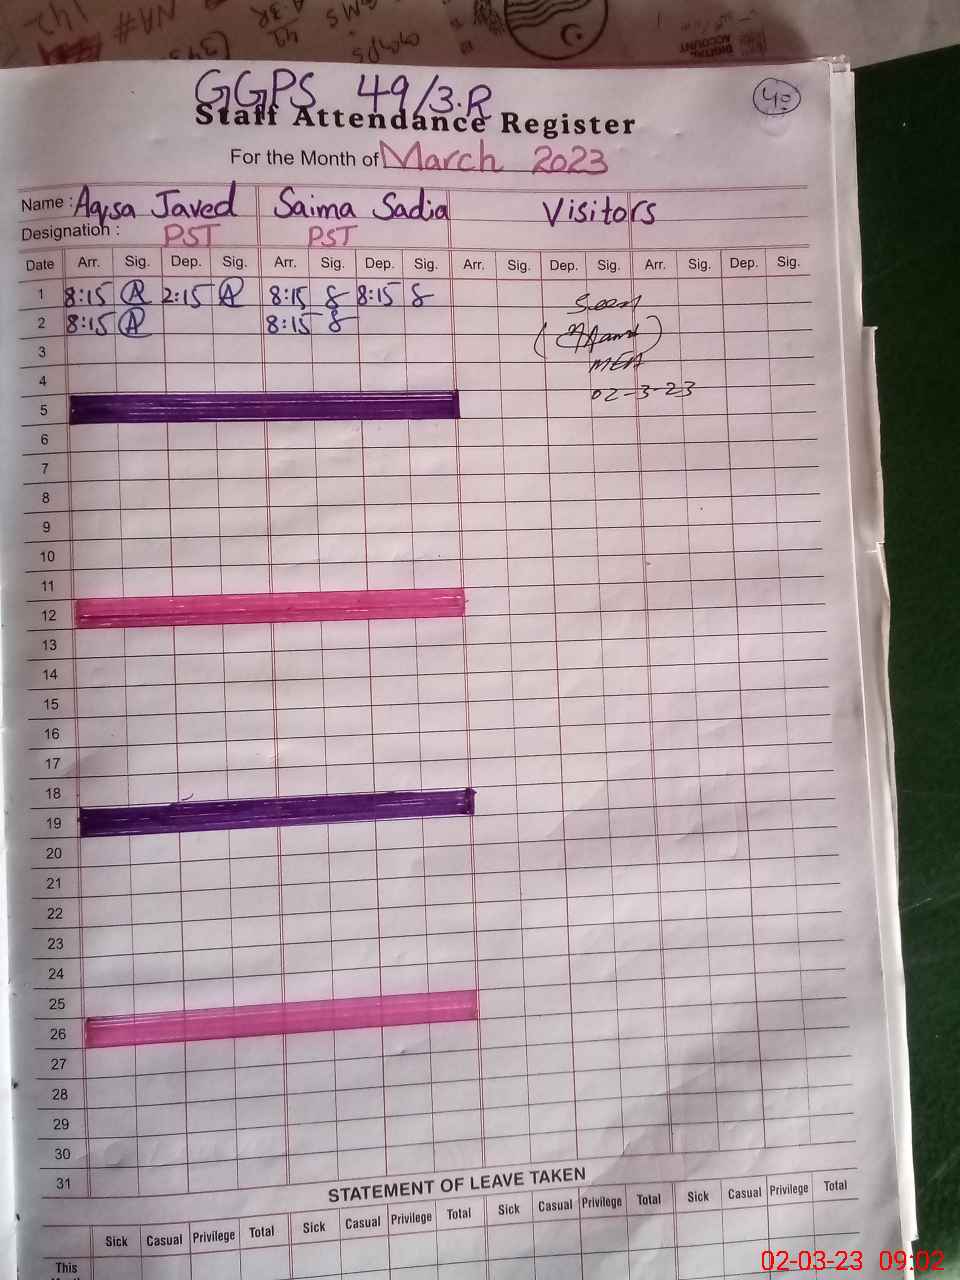 GGPS 49/3.R
Staff Attendance Register
For the Month of March 2023
Name : Aqsa Javed Saima Sadia Visitors
Designation : PST PST
Date Arr. Sig. Dep. Sig. Arr. Sig. Dep. Sig. Arr. Sig. Dep. Sig. Arr. Sig. Dep. Sig.
1 8:15 A 2:15 A 8:15 S 8:15 S Seen
2 8:15 A 8:15 S
3 MEA
4 02-3-23
5
6
7
8
9
10
11
12
13
14
15
16
17
18
19
20
21
22
23
24
25
26
27
28
29
30
31
STATEMENT OF LEAVE TAKEN
Sick Casual Privilege Total Sick Casual Privilege Total Sick Casual Privilege Total Sick Casual Privilege Total
This
02-03-23 09:02